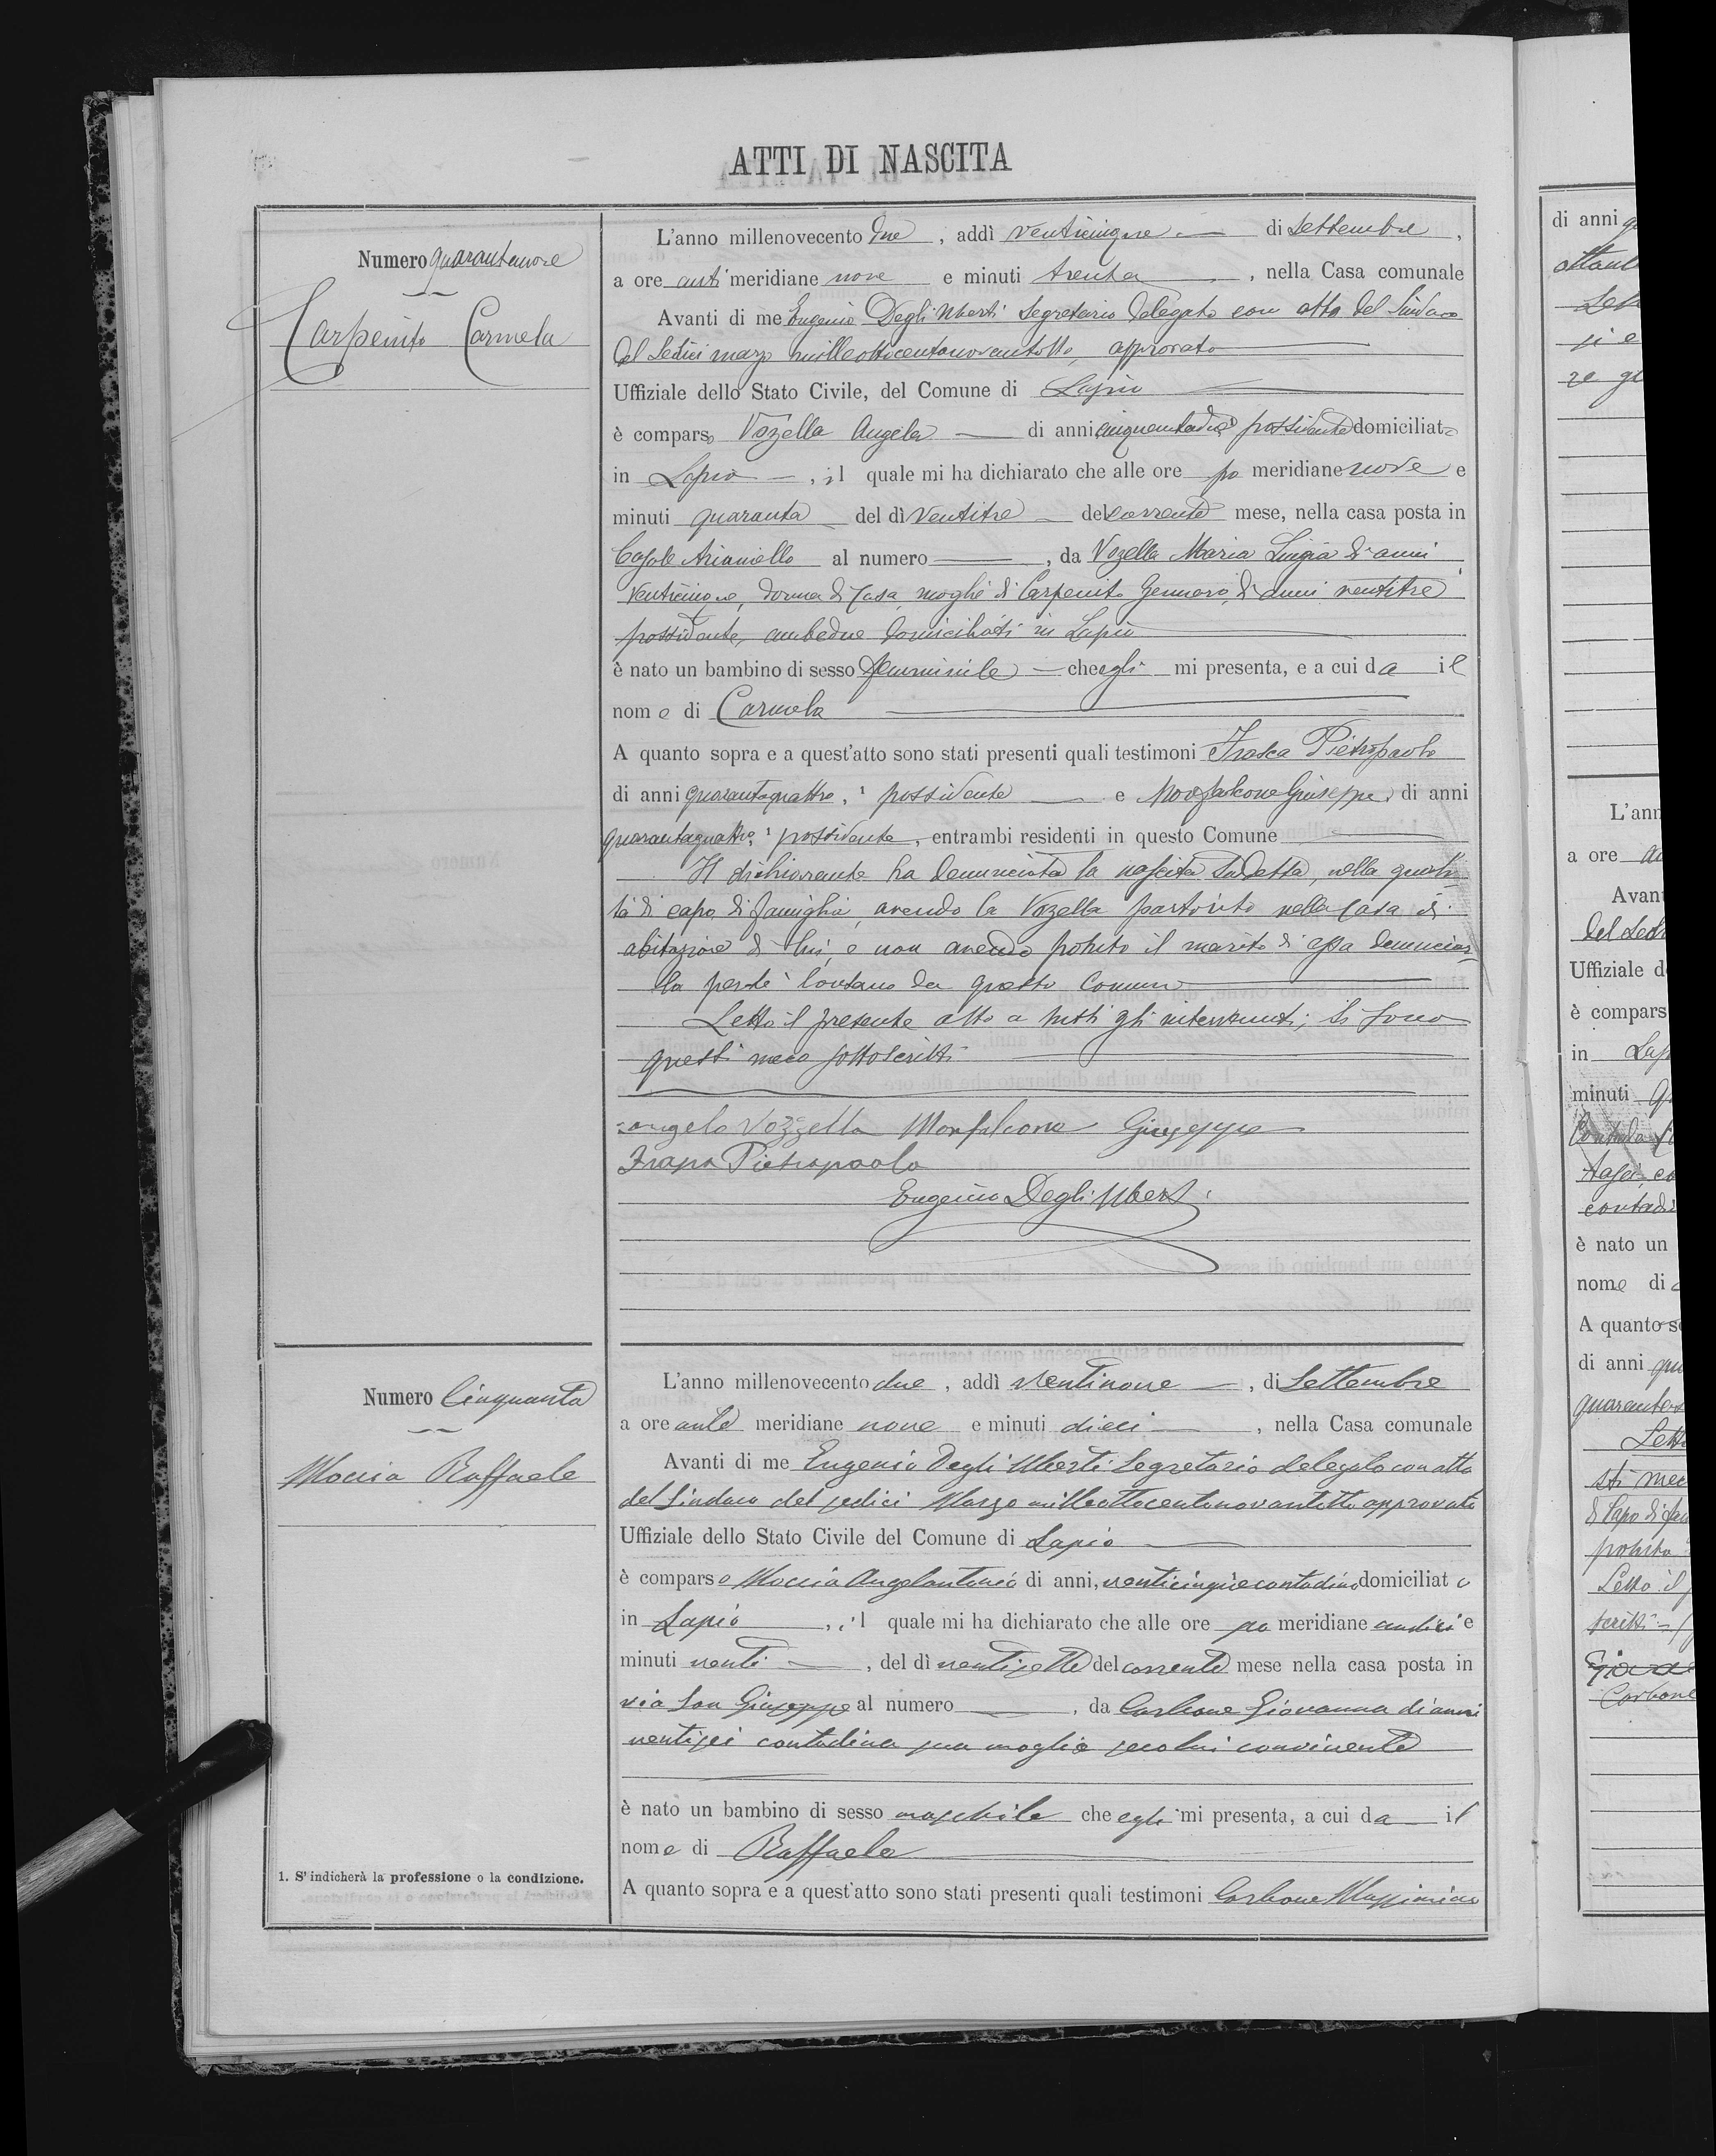 ATTI DI NASCITA
Numero quarantanove
Carpenito Carmela
L'anno millenovecento due, addì venticinque di Settembre,
a ore anti meridiane nove e minuti trenta, nella Casa comunale
Avanti di me Eugenio Degli Uberti Segretario delegato con atto del Sindaco
del Sedici marzo milleottocentonovantotto, approvato
Uffiziale dello Stato Civile, del Comune di Lapio
è comparso Vozella Angelo di anni cinquantadue possidente domiciliato
in Lapio, il quale mi ha dichiarato che alle ore po meridiane nove e
minuti quaranta del dì ventitre del corrente mese, nella casa posta in
Casale Arianiello al numero, da Vozella Maria Luigia di anni
venticinque, donna di casa, moglie di Carpenito Gennaro, di anni ventitre
possidente, ambedue domiciliati in Lapio
è nato un bambino di sesso femminile che egli mi presenta, e a cui da il
nome di Carmela
A quanto sopra e a quest'atto sono stati presenti quali testimoni Frasca Pietropaolo
di anni quarantaquattro, 1 possidente e Monfalcone Giuseppe, di anni
quarantaquattro, 1 possidente, entrambi residenti in questo Comune
Il dichiarante ha denunciata la nascita sudetta, nella quali-
tà di capo di famiglia, avendo la Vozella partorito nella casa di
abitazione di lui, e non avendo potuto il marito di essa denunciar-
la perchè lontano da questo Comune
Letto il presente atto a tutti gli intervenuti, si sono
questi meco sottoscritti
angelo Vozzella Monfalcone Giuseppe
Frasca Pietropaolo
Eugenio Degli Uberti
Numero Cinquanta
Moccia Raffaele
L'anno millenovecento due, addì ventinove, di Settembre
a ore ante meridiane nove e minuti dieci, nella Casa comunale
Avanti di me Eugenio Degli Uberti Segretario delegato con atto
del Sindaco del sedici Marzo milleottocentonovantotto approvato
Uffiziale dello Stato Civile del Comune di Lapio
è comparso Moccia Angelantonio di anni, venticinque contadino domiciliato
in Lapio, il quale mi ha dichiarato che alle ore po meridiane undici e
minuti venti, del dì ventisette del corrente mese nella casa posta in
via San Giuseppe al numero, da Carbone Giovanna di anni
ventisei contadina sua moglie seco lui convivente
è nato un bambino di sesso maschile che egli mi presenta, a cui da il
nome di Raffaele
A quanto sopra e a quest'atto sono stati presenti quali testimoni Carbone Massimino
1. S'indicherà la professione o la condizione.
di anni
L'ann
a ore
Avan
del Sedi
Uffiziale d
è compars
in Lap
minuti
Contrada
contadi
è nato un
nome di
A quanto s
di anni
quaranta
Letto
sti mec
di Capo di fa
potuto
Letto il
scritti
Carbone